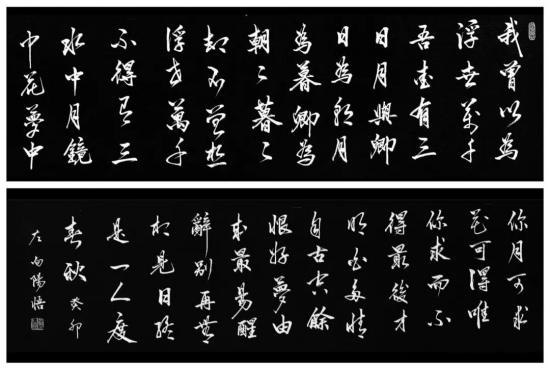 我曾以為
浮世萬千
吾愛有三
日月與卿
日為朝月
為暮卿為
朝々暮々
却不曾想
浮世萬千
不得有三
水中月鏡
中花夢中
你月可求
花可得唯
你求而不
得最後才
明白多情
自古空餘
恨好夢由
來最易醒
辭別再無
相見日終
是一人度
春秋 癸卯
左向陽悟